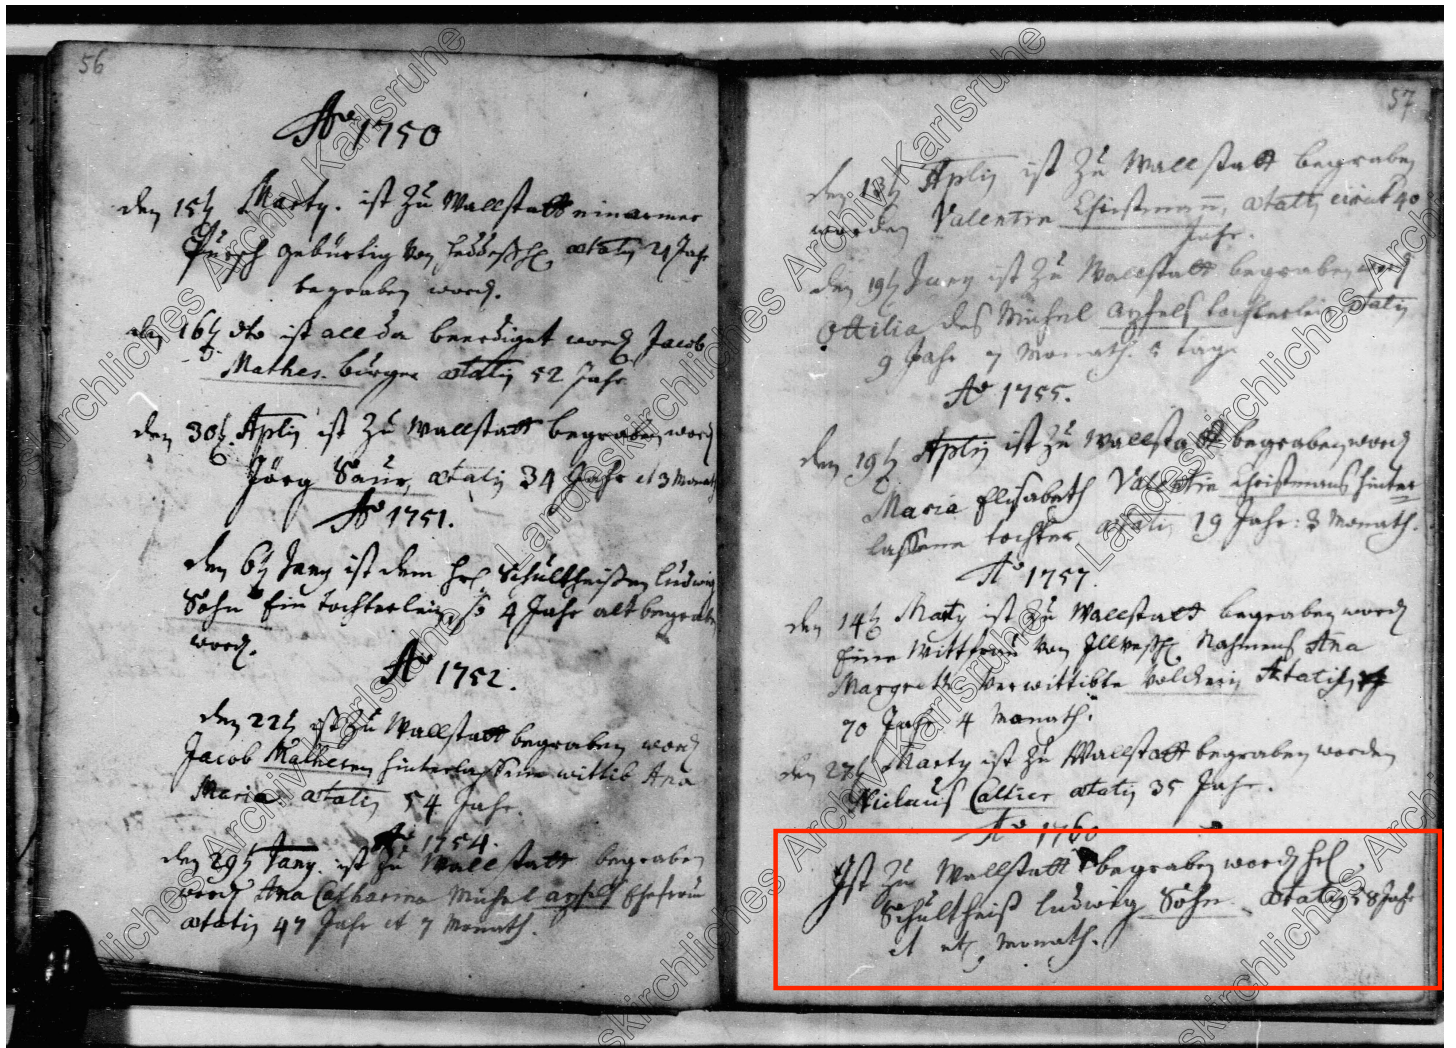 56
Ao 1750
den 15t Marty. ist zu Wallstatt ein armer
Pursch gebürtig von aetatis 21 Jahr
begraben word.
den 16t dto ist allda beerdiget word Jacob
Mathes. burger aetatis 52 Jahr
den 30t Aplis ist zu Wallstatt begraben word
Jörg Saur, aetatis 34 Jahr et 3 Monath
Ao 1751.
den 6t Jany ist dem H. Schultheißen Ludwig
Sohn Ein töchterlein, so 4 Jahr alt begraben
word.
Ao 1752.
den 22t ist zu Wallstatt begraben word
Jacob Mathesen hinterlassene wittib Ana
Maria. aetatis 54 Jahr.
Ao 1754.
den 29t Jany. ist zu Wallstatt begraben
word Ana Catharina Michel Ehefrau
aetatis 47 Jahr et 7 Monath.
57
den Aplis ist zu Wallstatt begraben
worden Valentin Christmann, aetatis circa 40
Jahr.
den 19t Juny ist zu Wallstatt begraben word
Ottilia des Michel töchterlein aetatis
9 Jahr 7 Monath. 5 tage
Ao 1755.
den 19t Aplis ist zu Wallstatt begraben word
Maria Elisabeth Valentin Christmans hinter
lassene tochter, aetatis 19 Jahr: 3 Monath.
Ao 1757.
den 14t Marty ist zu Wallstatt begraben word
Eine Wittfrau von Nahmens Ana
Margretha Verwittibte Volckerin Aetatis
70 Jahr 4 Monath.
den 27t Marty ist zu Wallstatt begraben worden
Niclaus aetatis 35 Jahr.
Ao 1760
Ist zu Wallstatt begraben word H.
Schultheiß Ludwig Sohn aetatis 58 Jahr
et Monath.
Landeskirchliches Archiv Karlsruhe